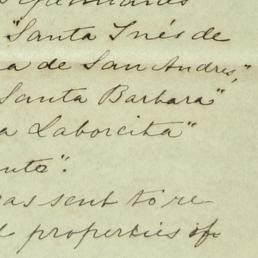 "Santa Inés de
a de San Andres,"
Santa Barbara"
a Laborcita"
ente".
was sent to re
d properties of